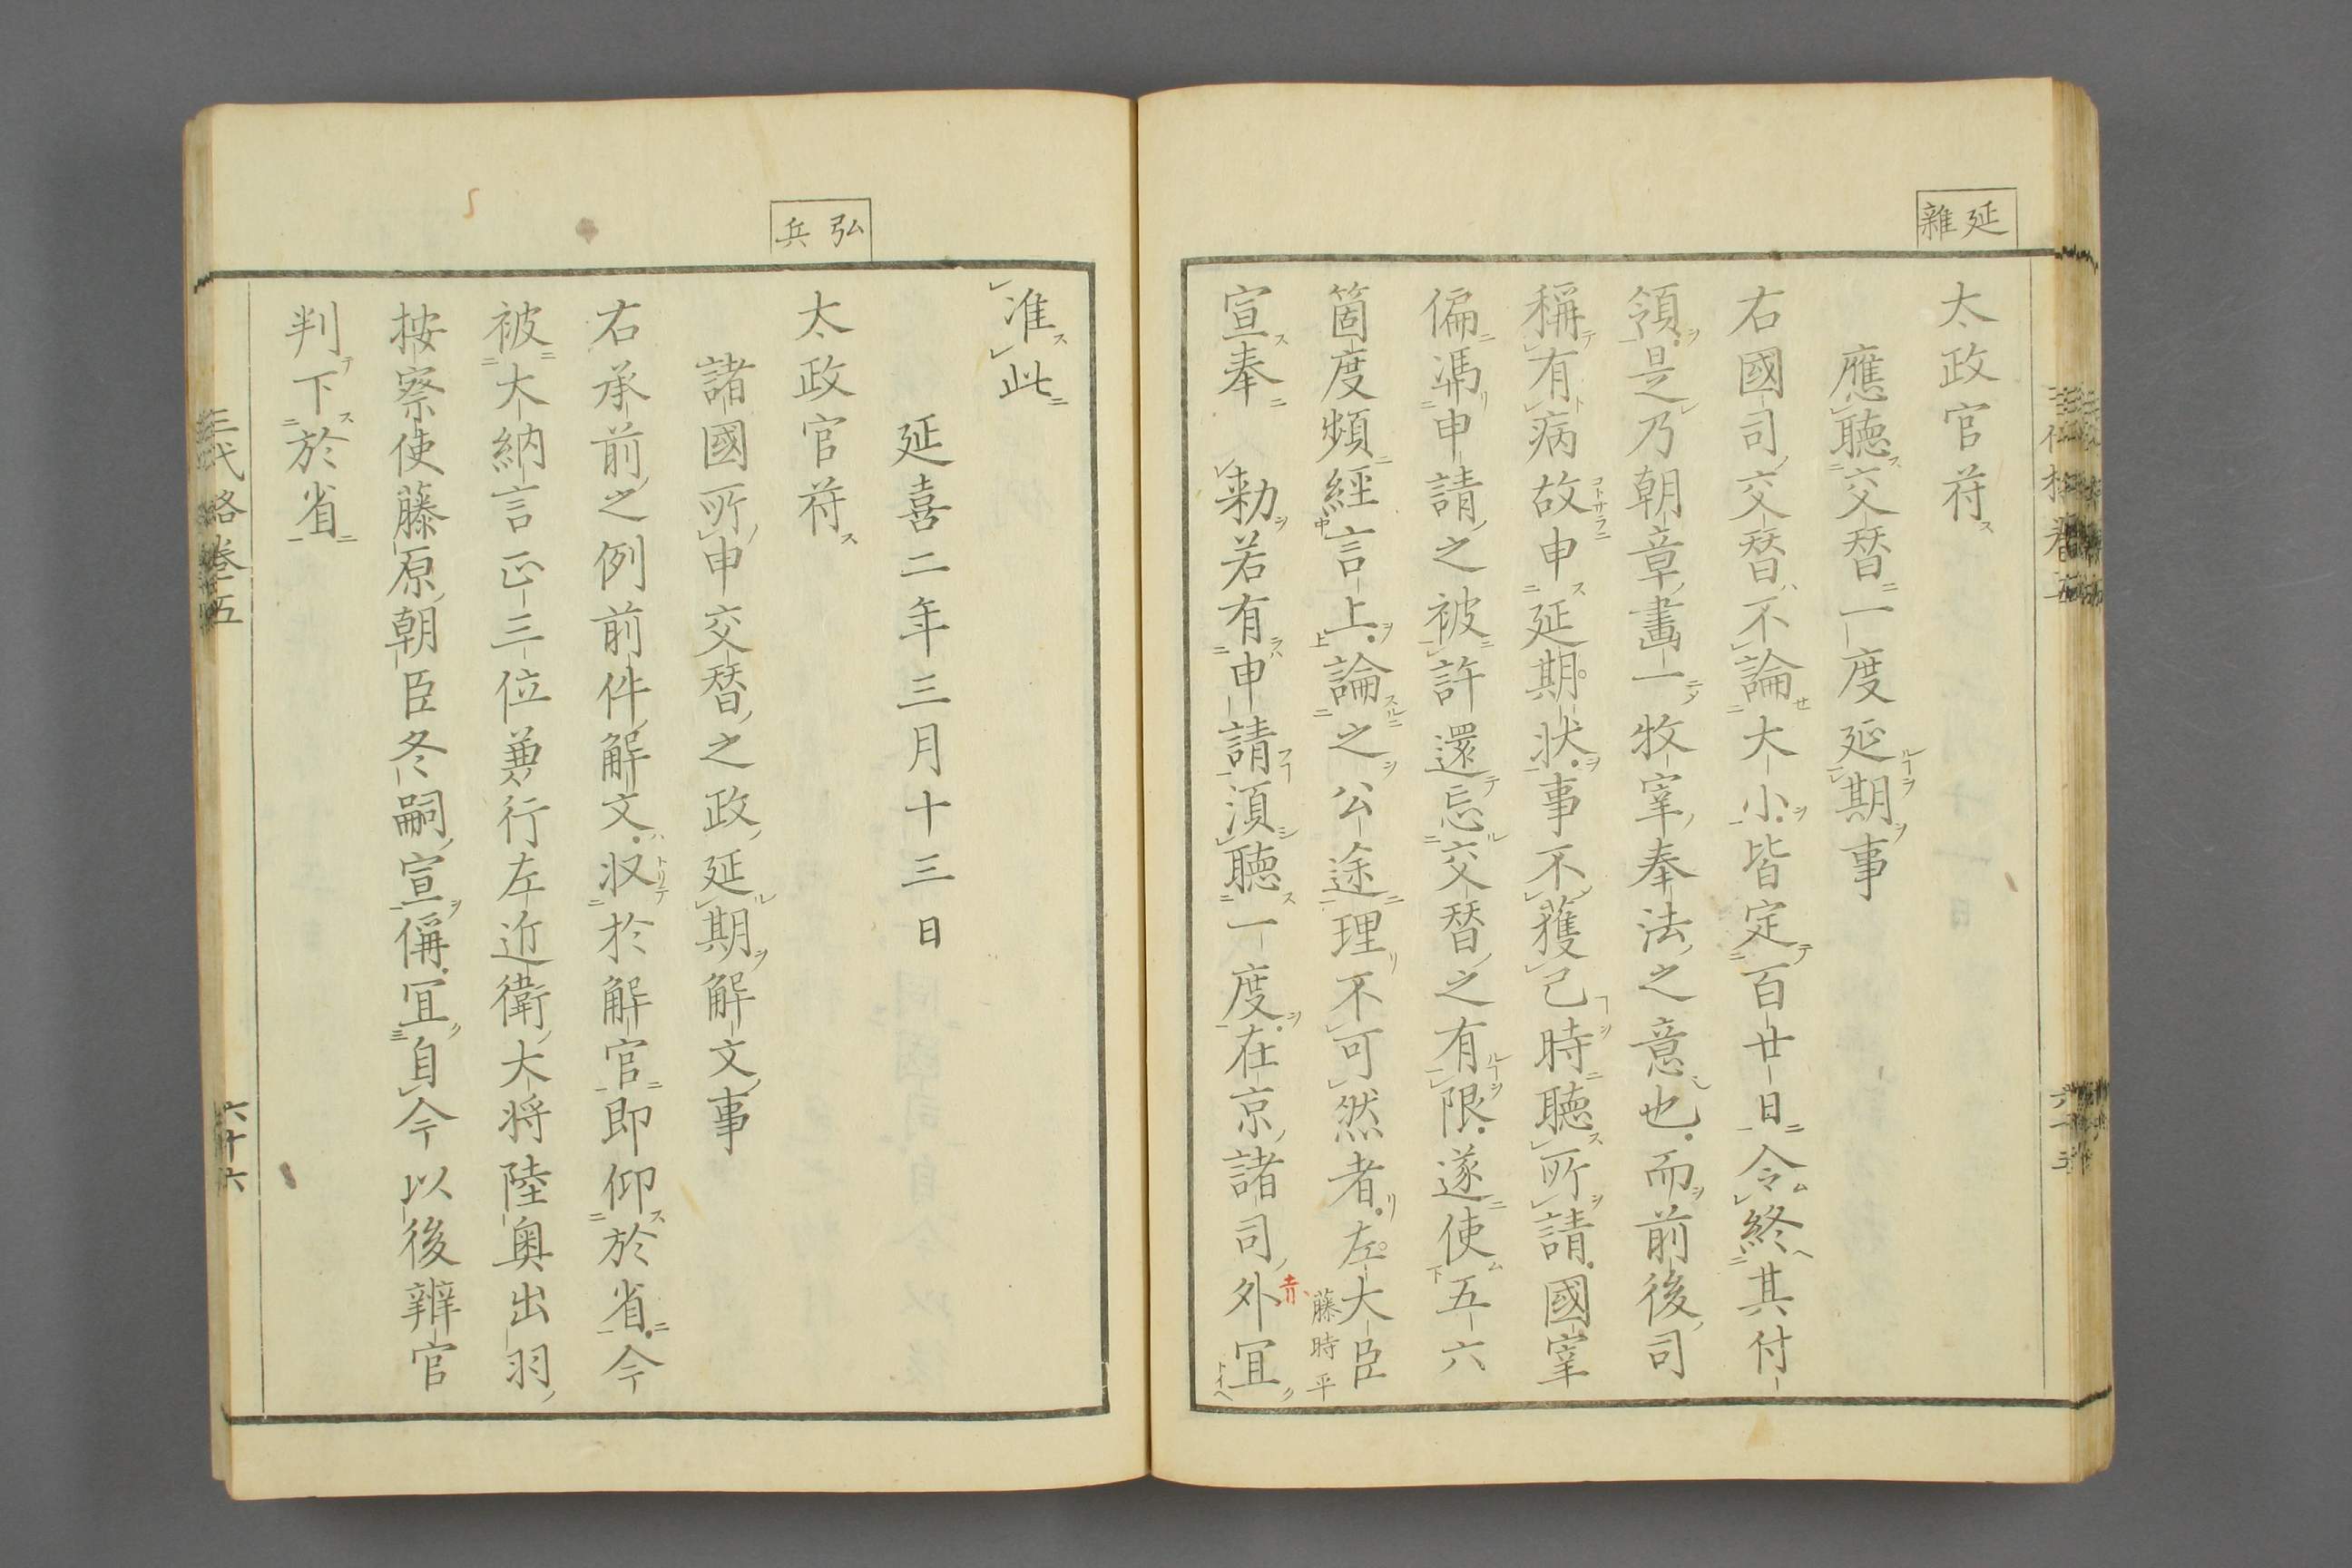 延雜
太政官符
應聴交替一度延期事
右國司交替不論大小皆定百廿日令終其付
領是乃朝章畫一牧宰奉法之意也而前後司
稱有病故申延期状事不獲已時聴所請國宰
偏馮申請之被許還忘交替之有限遂使五六
箇度頻經言上論之公途理不可然者左大臣
藤時平
宣奉　勅若有申請湏聴一度在京諸司外冝
准此
延喜二年三月十三日
弘兵
太政官符
諸國所申交替之政延期解文事
右承前之例前件解文収於解官即仰於省今
被大納言正三位兼行左近衛大将陸奥出羽
按察使藤原朝臣冬嗣宣偁冝自今以後辨官
判下於省
三代格卷五
六十六